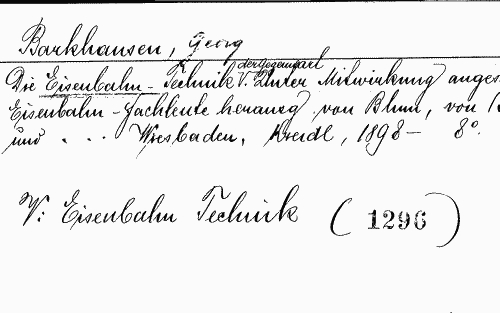 Barkhausen, Georg
Die Eisenbahn-Technik der Gegenwart V. Unter Mitwirkung anges
Eisenbahn-Fachleute herausg. von Blum, von
und . . . Wiesbaden, Kreidl, 1898- 8°.
V: Eisenbahn Technik (1296)